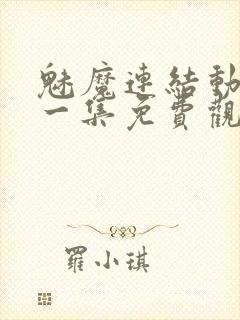 魅魔連結動
一集免費觀
羅小琪